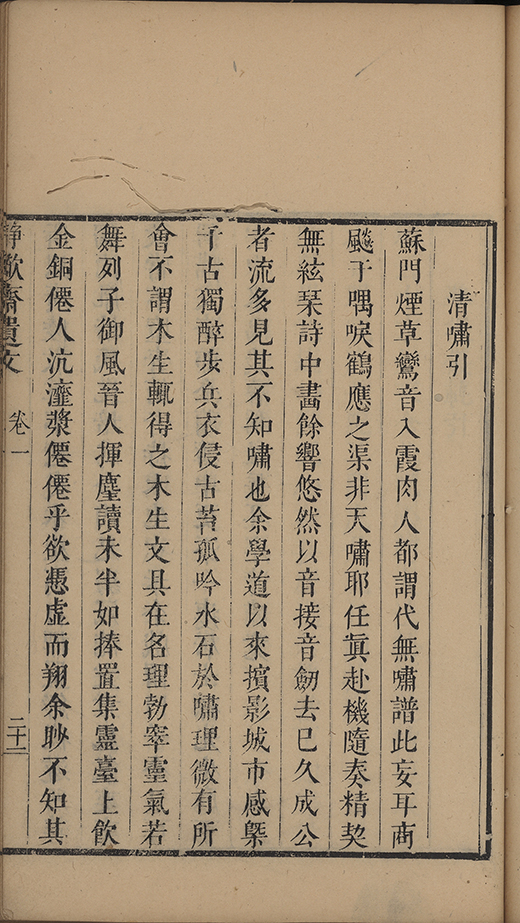 清嘯引
蘇門煙草鸞音入霞肉人都謂代無嘯譜此妄耳商
飈于喁唳鶴應之渠非天嘯耶任眞赴機隨奏精契
無絃琹詩中畵餘響悠然以音接音劒去已久成公
者流多見其不知嘯也余學道以來擯影城市感槩
千古獨醉步兵衣侵古苔孤吟水石於嘯理微有所
會不謂木生輒得之木生文具在名理勃窣靈氣若
舞列子御風晉人揮麈讀未半如捧置集靈臺上飲
金銅僊人沆瀣漿僊僊乎欲憑虛而翔余眇不知其
靜歗齋遺文
卷一
二十一